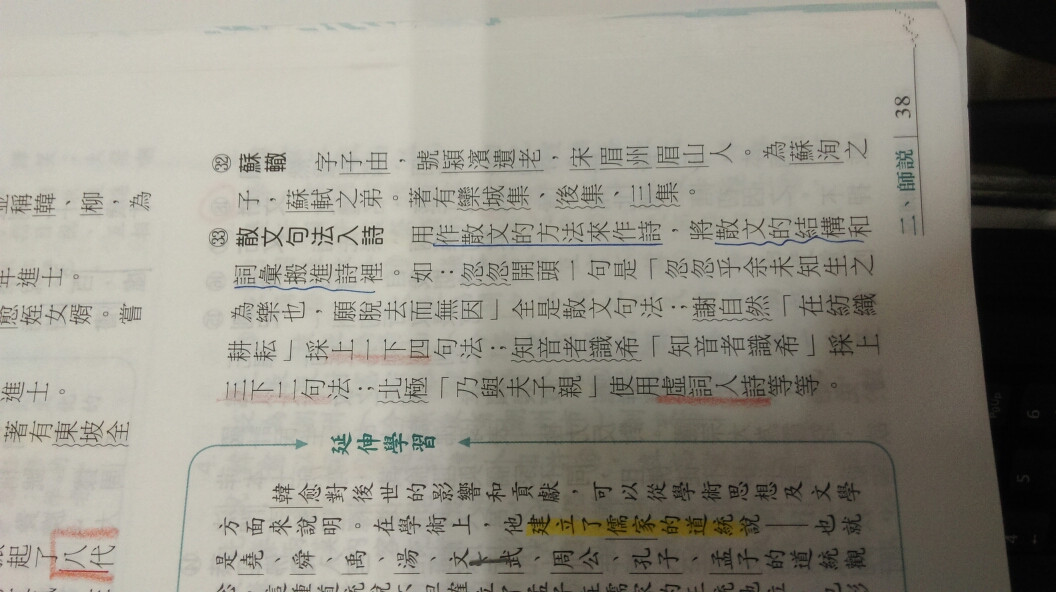 二、師說 38
㉜ 蘇轍 字子由，號潁濱遺老，宋眉州眉山人。為蘇洵之
子，蘇軾之弟。著有欒城集、後集、三集。
㉝ 散文句法入詩 用作散文的方法來作詩，將散文的結構和
詞彙搬進詩裡。如：忽忽開頭一句是「忽忽乎余未知生之
為樂也，願脫去而無因」全是散文句法；謝自然「在紡織
耕耘」採上一下四句法；知音者識希「知音者識希」採上
三下二句法；北極「乃與夫子親」使用虛詞入詩等等。
延伸學習
韓愈對後世的影響和貢獻，可以從學術思想及文學
方面來說明。在學術上，他建立了儒家的道統說——也就
是堯、舜、禹、湯、文、武、周公、孔子、孟子的道統觀
並稱韓、柳，為
年進士。
愈姪女婿。嘗
進士。
著有東坡全
起了八代